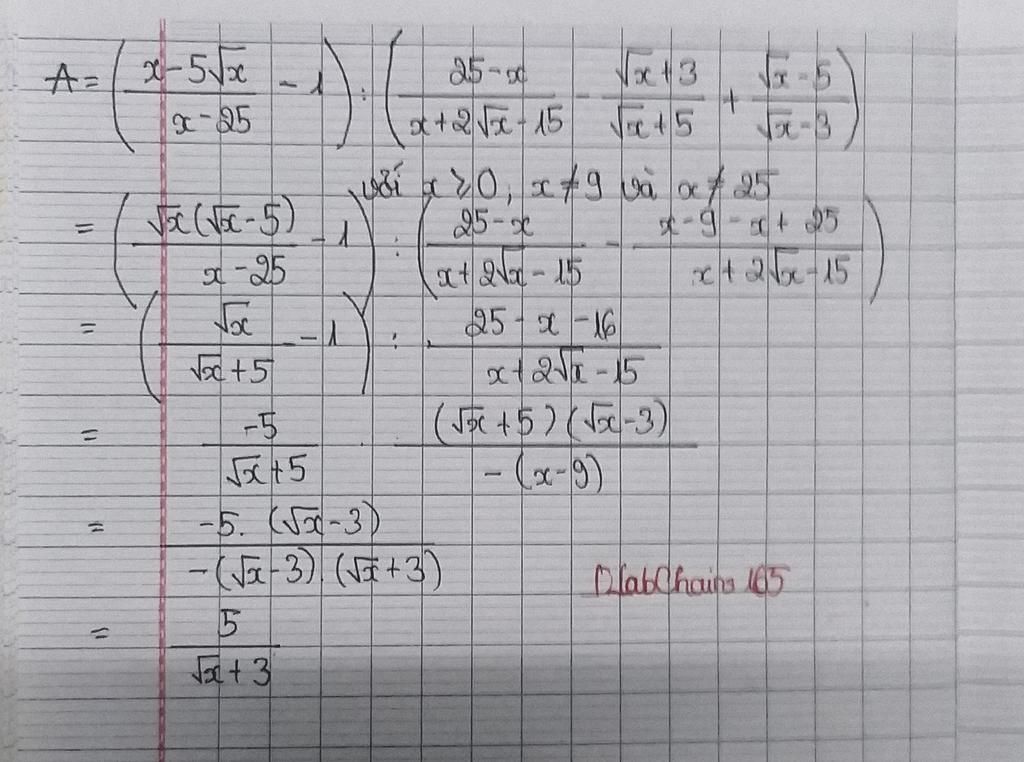 A = ( (x - 5√x)/(x - 25) - 1 ) : ( (25 - x)/(x + 2√x - 15) - (√x + 3)/(√x + 5) + (√x - 5)/(√x - 3) )
với x ≥ 0, x ≠ 9 và x ≠ 25
= ( √x(√x - 5)/(x - 25) - 1 ) : ( (25 - x)/(x + 2√x - 15) - (x - 9 - x + 25)/(x + 2√x - 15) )
= ( √x/(√x + 5) - 1 ) : (25 - x - 16)/(x + 2√x - 15)
= -5/(√x + 5) . (√x + 5)(√x - 3)/(-(x - 9))
= -5.(√x - 3)/(-(√x - 3).(√x + 3))
= 5/(√x + 3)